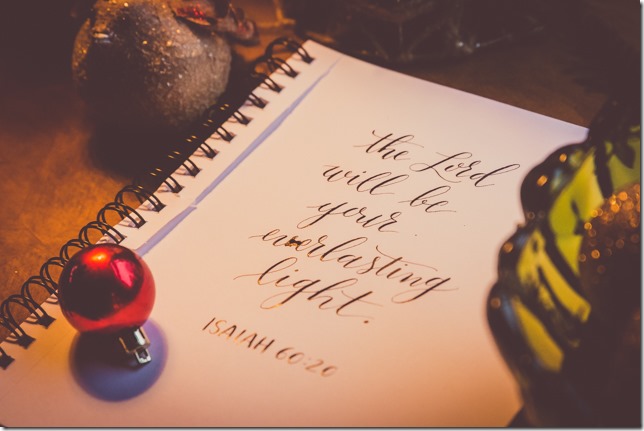 the Lord
will be
your
everlasting
light.
ISAIAH 60:20